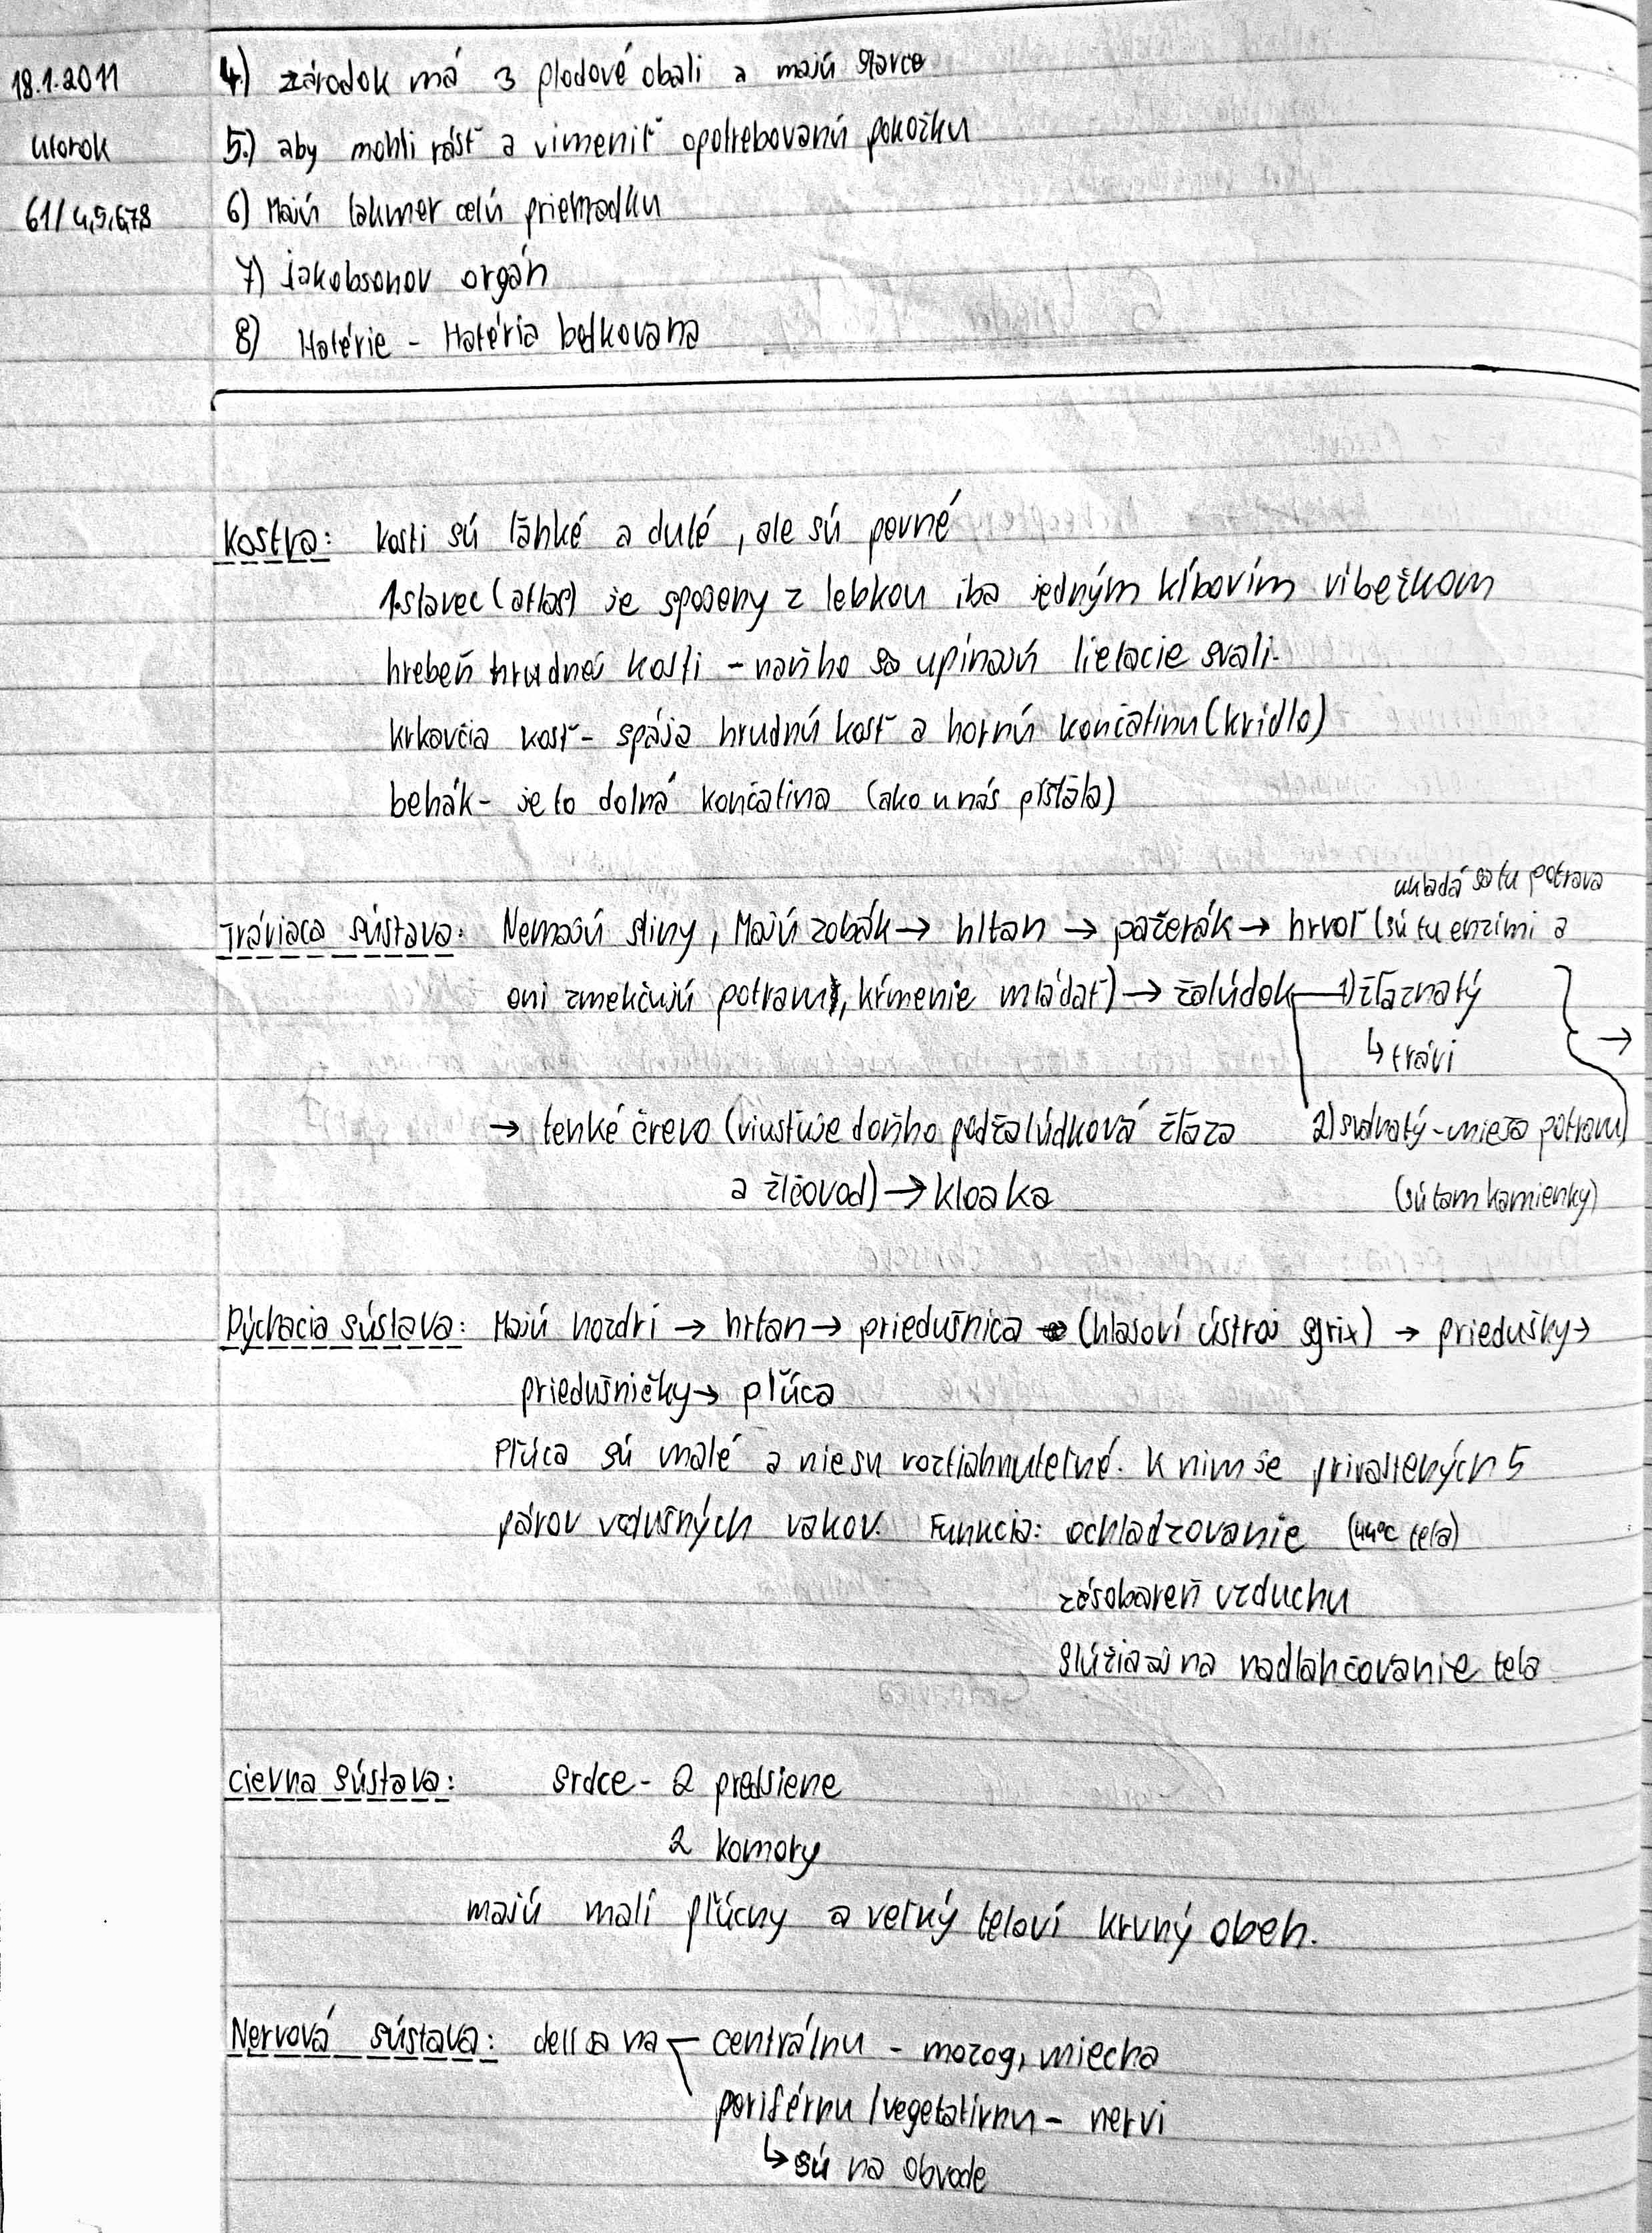 18.1.2011
utorok
61/4,5,6,7,8
4.) zárodok má 3 plodové obali a majú slavce
5.) aby mohli rásť a vimeniť opotrebovanú pokožku
6) Majú takmer celú priehradku
7) jakobsonov orgán
8) Hatérie - Hatéria bodkovana
Kostra: kosti sú ľahké a duté, ale sú pevné
1.stavec (atlas) je spojeny z lebkou iba jedným kĺbovím vibežkom
hrebeň hrudnej kosti - naňho sa upínajú lietacie svali.
krkovčia kosť - spája hrudnú kosť a hornú končatinu (krídlo)
behák - je to dolná končatina (ako u nás píšťala)
ukladá sa tu potrava
Tráviaca sústava: Nemajú sliny, Majú zobák → hltan → pažerák → hrvoľ (sú tu enzími a
oni zmekčujú potravu, kŕmenie mláďat) → žalúdok 1) žľaznatý
↳ trávi
→ tenké črevo (viusťuje doňho podžalúdková žľaza 2) svalnatý - mieša potravu
a žlčovod) → kloaka (sú tam kamienky)
Dýchacia sústava: Majú nozdri → hrtan → priedušnica (hlasoví ústroj syrix) → priedušky →
priedušničky → pľúca
Pľúca sú malé a niesu rozťiahnuteľné. K nim je privastených 5
párov vzdušných vakov. Funkcia: ochladzovanie (44°C tela)
zásobáreň vzduchu
Slúžia aj na nadlahčovanie tela
Cievna sústava: Srdce - 2 predsiene
2 komory
majú malí pľúcny a veľký teloví krvný obeh.
Nervová sústava: delí sa na centrálnu - mozog, miecha
periférnu / vegetatívnu - nervi
↳ sú na obvode